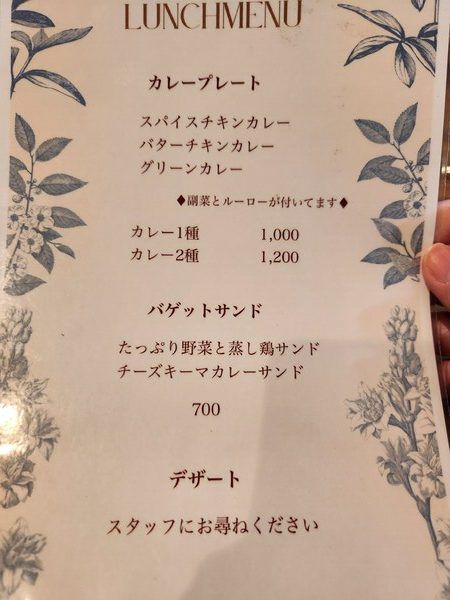 LUNCHMENU
カレープレート
スパイスチキンカレー
バターチキンカレー
グリーンカレー
♦副菜とルーローが付いてます♦
カレー1種 1,000
カレー2種 1,200
バゲットサンド
たっぷり野菜と蒸し鶏サンド
チーズキーマカレーサンド
700
デザート
スタッフにお尋ねください